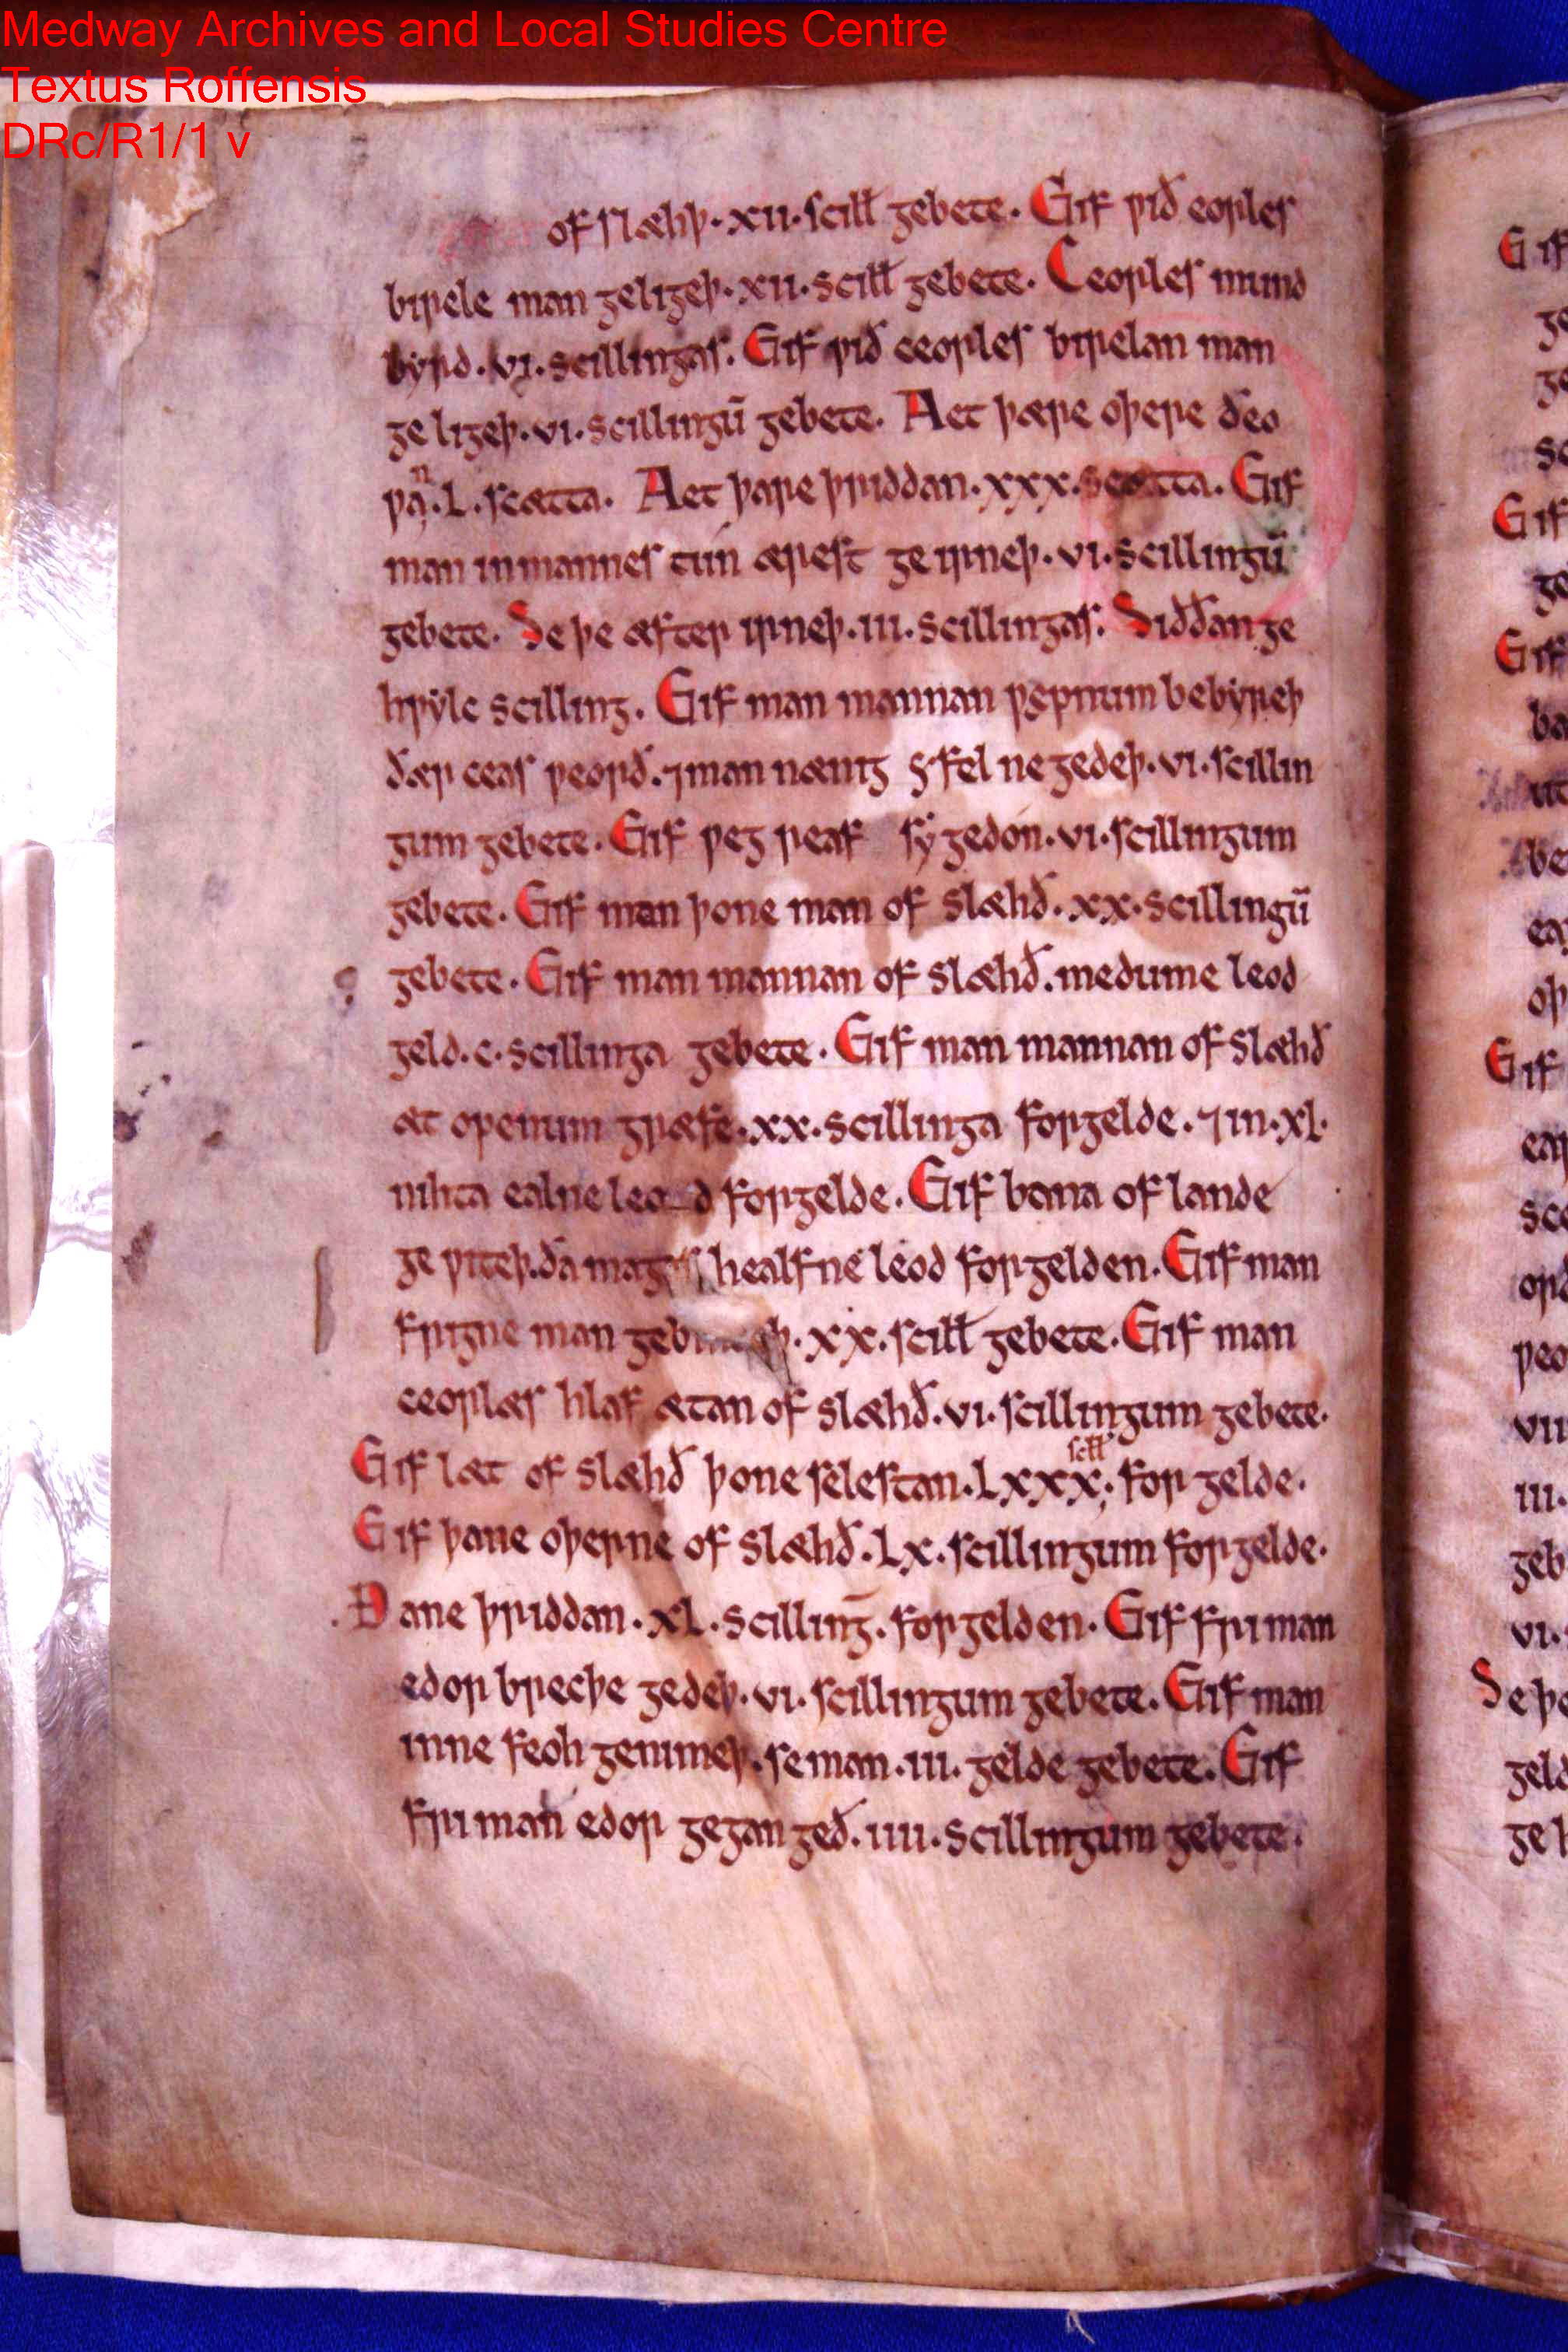 Medway Archives and Local Studies Centre
Textus Roffensis
DRc/R1/1 v
of slæhþ· xii· scill gebete· Gif ƿið eorles
birele man geligeþ· xii· scill gebete· Ceorles mund
byrd· vi· scillingas. Gif ƿið ceorles birelan man
ge ligeþ· vi· scillingū gebete· Aet þære oþere ðeo
ƿan· L· scætta· Aet þare þriddan· xxx· scætta· Gif
man inmannes tún ærest ge irneþ· vi· scillingū
gebete· Se þe æfter irneþ· iii· scillingas. Siððan ge
hƿylc scilling. Gif man mannan ƿepnum bebyreþ
ðær ceas ƿeorð.⁊man nænig yfel ne gedeþ· vi· scillin
gum gebete· Gif ƿeg reaf sy gedón· vi· scillingum
gebete· Gif man þone man of slæhð· xx· scillingū
gebete· Gif man mannan of slæhð. medume leod
geld· c· scillinga gebete· Gif man mannan of slæhð
æt openum græfe· xx· scillinga forgelde· ⁊in· xl·
nihta ealne leod forgelde· Gif bana of lande
ge ƿiteþ. ða magas healfne leod forgelden· Gif man
frigne man þ· xx· scill gebete· Gif man
ceorlæs hlaf ætan of slæhð· vi· scillingum gebete·
Gif læt of slæhð þone selestan· Lxxx scll· for gelde·
Gif þane oþerne of slæhð· Lx· scillingum forgelde·
Ðane þriddan· xL· scilling̅· forgelden· Gif friman
edor brecþe gedeþ· vi· scillingum gebete· Gif man
inne feoh genimeþ· seman· iii· gelde gebete· Gif
friman edor gegangeð· iiii· scillingum gebete·